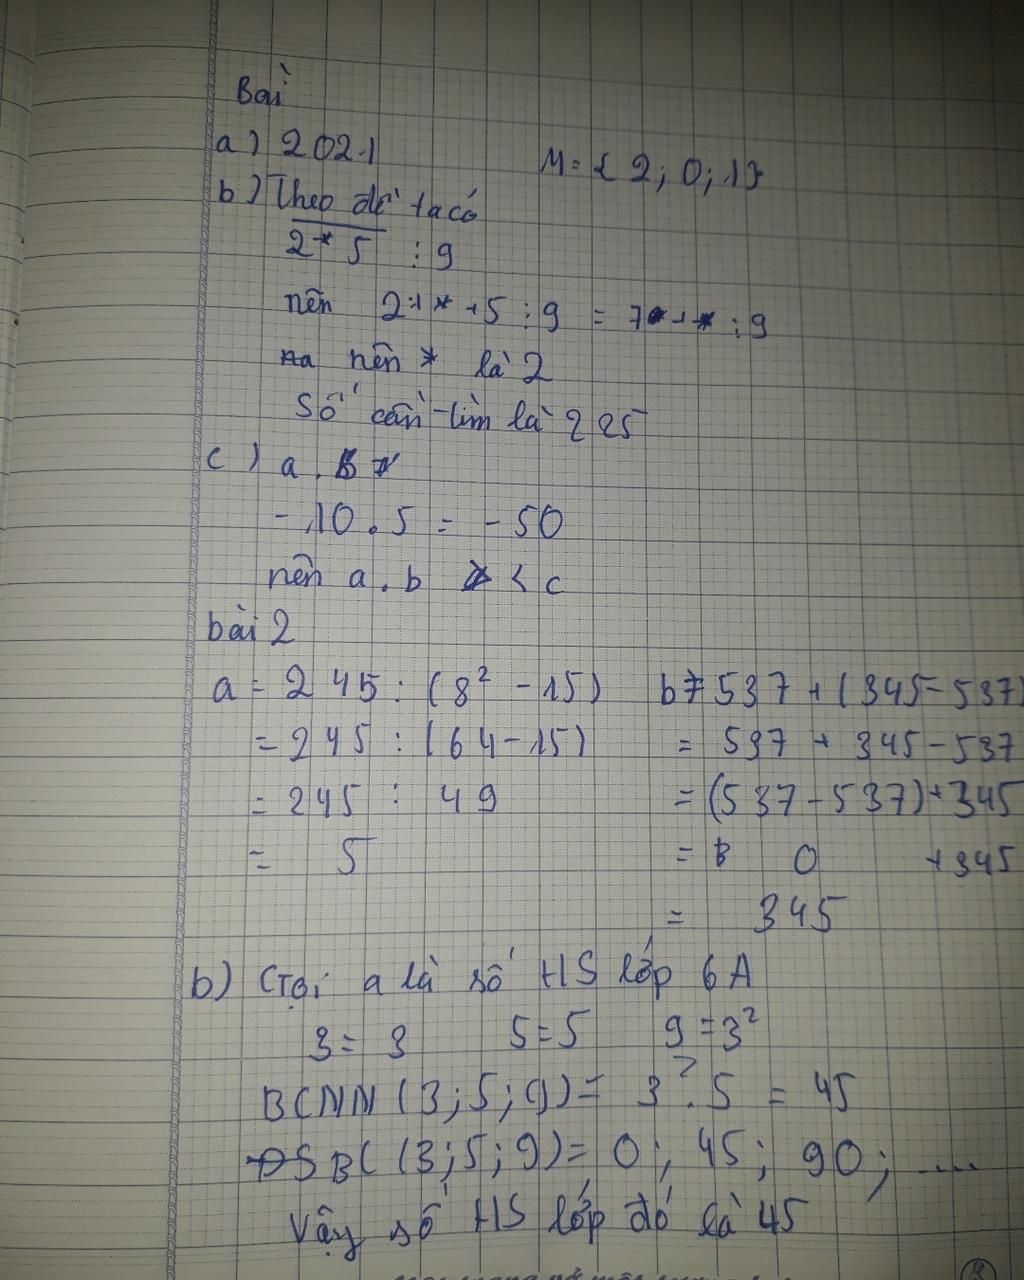 Bài
a) 2021 M = { 2; 0; 1}
b) Theo đề ta có
2*5 ⋮ 9
nên 2+*+5 ⋮ 9 = 7+* ⋮ 9
nên * là 2
Số cần tìm là 225
c) a.b
-10.5 = -50
nên a.b < c
bài 2
a = 245 : (8² - 15) b = 537 + (345 - 537)
= 245 : (64 - 15) = 537 + 345 - 537
= 245 : 49 = (537 - 537) + 345
= 5 = 0 + 345
= 345
b) Gọi a là số HS lớp 6A
3 = 3 5 = 5 9 = 3²
BCNN (3; 5; 9) = 3². 5 = 45
BC (3; 5; 9) = 0; 45; 90; ....
Vậy số HS lớp đó là 45